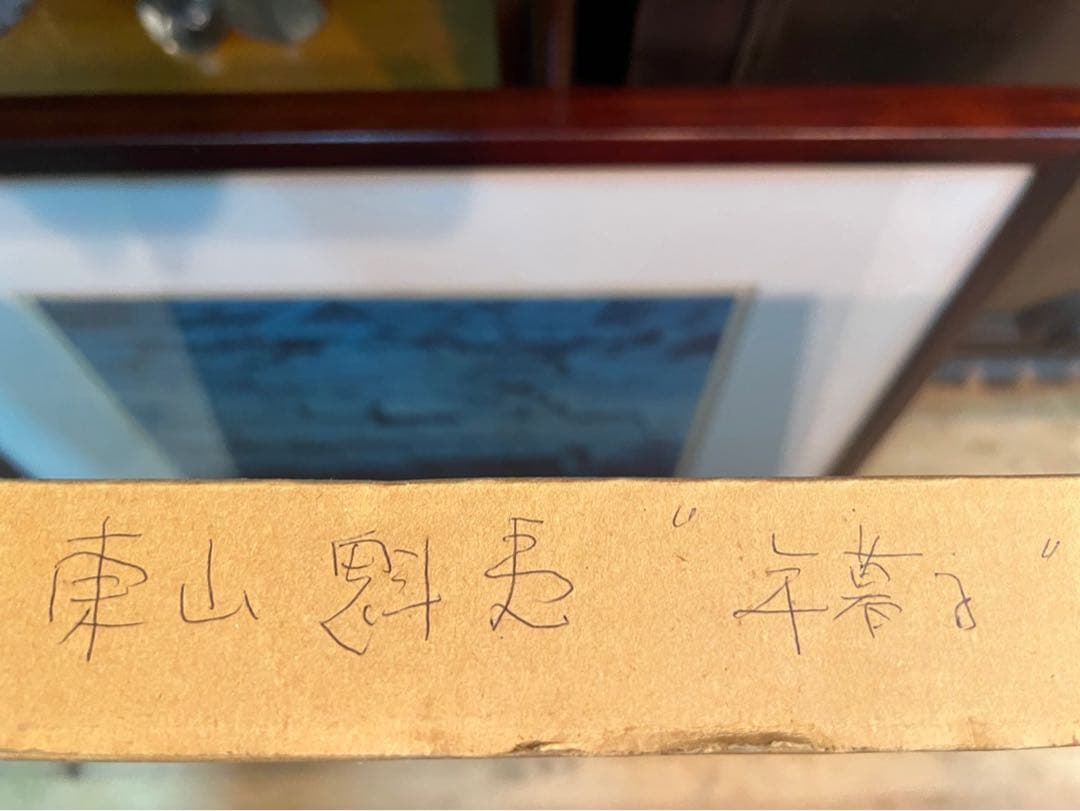 東山 魁夷 “年暮る”